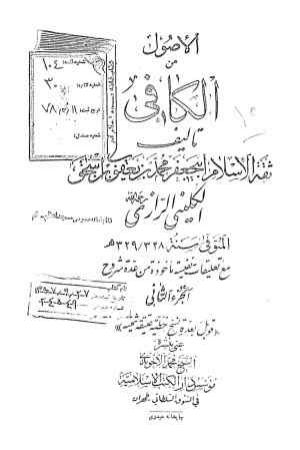 الأصول
من
الكافي
تأليف
ثقة الاسلام ابي جعفر محمد بن يعقوب بن اسحق
الكليني الرازي
المتوفى سنة ٣٢٨/٣٢٩ هـ
مع تعليقات نفيسة مأخوذة من عدة شروح
الجزء الثاني
قوبل بعدة نسخ خطية عتيقة ثمينة
عني بنشره
الشيخ محمد الآخوندي
مؤسس دار الكتب الاسلامية
في السوق السلطاني بطهران
چاپخانه حیدری